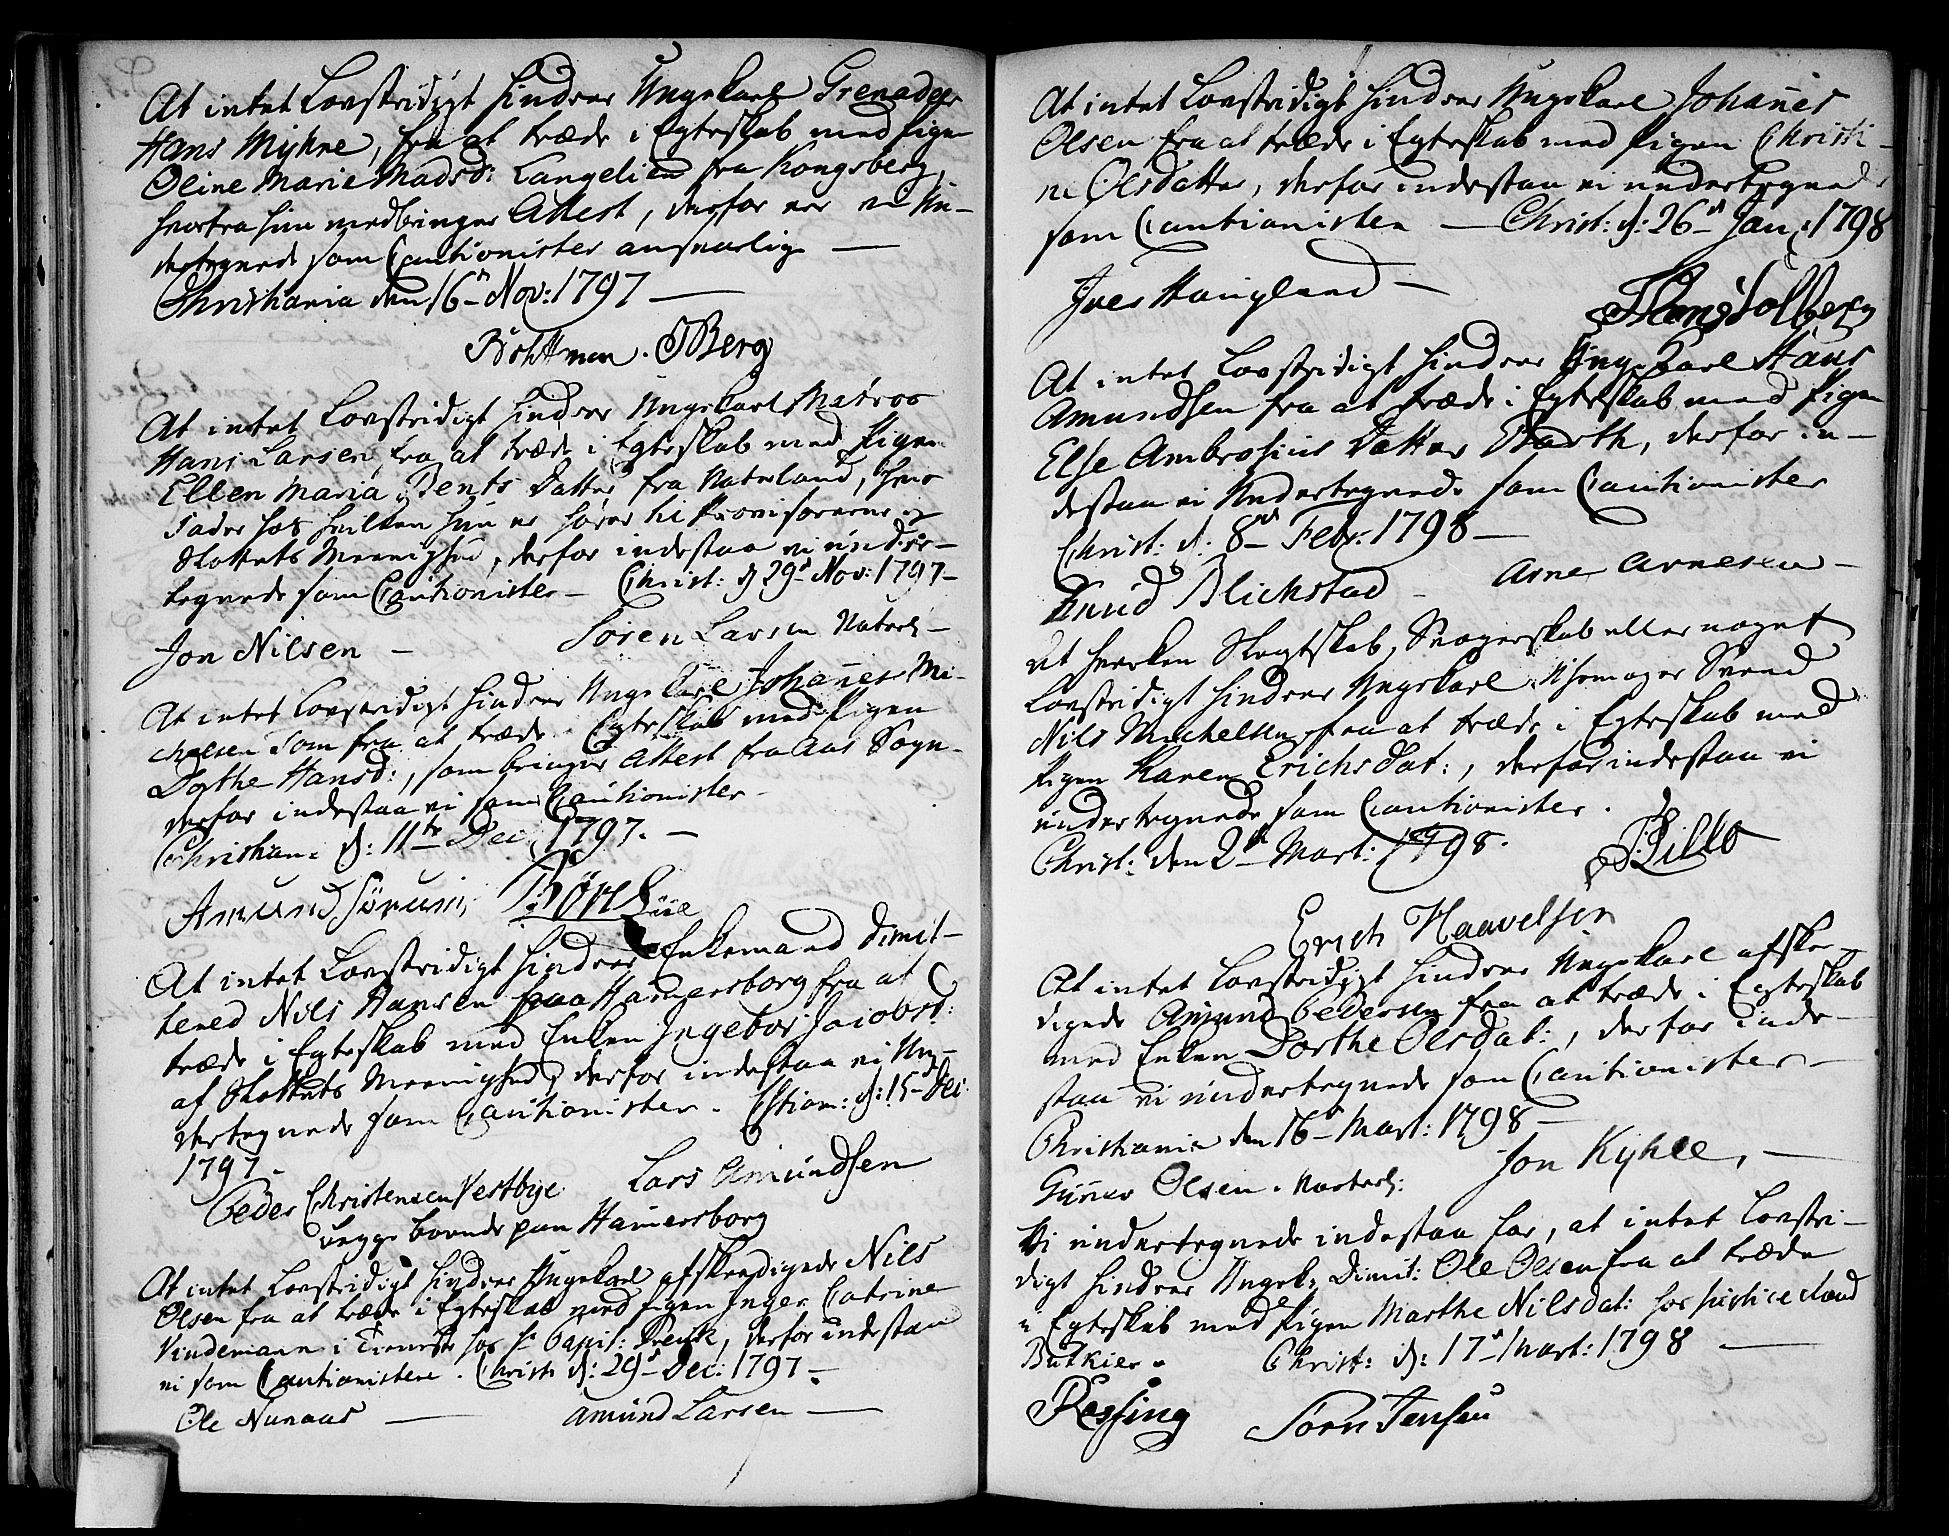 At intet Lovstridigt hindrer Ungekarl Grenadeer
Hans Myhre, fra at træde i Egteskab med Pigen
Oline Marie Madsd: Langeli fra Kongsberg,
hvorfra hun medbringer Attest, derfor ere vi Un-
dertegnede som Cautionister ansvarlige —
Christiania den 16de Nov: 1797 —
Berg
At intet Lovstridigt hindrer Ungekarl Matros
Hans Larsen, fra at træde i Egteskab med Pigen
Ellen Maria Bents Datter fra Vaterland, hvis
Fader hos hvilken hun er hører til
Slottets Meenighed, derfor indestaa vi under-
tegnede som Cautionister — Christ: d 29de Nov: 1797 —
Jon Nilsen — Søren Larsen Vaterl: —
At intet Lovstridigt hindrer Ungekarl Johañes Mi-
chelsen fra at træde i Egteskab med Pigen
Dorthe Hansd:, som bringer Attest fra Aas Sogn
derfor indestaa vi som Cautionister —
Christian: d: 11te Dec: 1797. —
Amund Sørum,
At intet Lovstridigt hindrer Enkemand dimit-
tered Nils Hansen paa Hamersborg fra at
træde i Egteskab med Enken Ingebor Jacobsd:
af Slottets Meenighed, derfor indestaa vi Un-
dertegnede som Cautionister. d: 15 Dec:
1797 —
Peder Christensen Vestbye Lars Amundsen
begge boende paa Hamersborg
At intet Lovstridigt hindrer Ungekarl afskeedigede Nils
Olsen fra at træde i Egteskab med Pigen Inger Catrine
Vindemann i Tieneste hos Hr Capit: derfor indestaa
vi som Cautionistere. Christ: d: 29de Dec: 1797 —
Ole Nunaas — Amund Larsen —
At intet Lovstridigt hindrer Ungekarl Johañes
Olsen fra at træde i Egteskab med Pigen Christi-
ne Olsdatter, derfor indestaa vi undertegnede
som Cautionister — Christ: d: 26de Jan: 1798
Iver Haugland — Hans Solberg
At intet Lovstridigt hindrer Ungekarl Hans
Amundsen fra at træde i Egteskab med Pigen
Else Ambrosius Datter Barth, derfor in-
destaa vi Undertegnede som Cautionister
Christ: d: 8de Febr: 1798 —
Knud Blichstad — Arne Arnesen —
At hverken Slegtskab, Svogerskab eller noget
Lovstridigt hindrer Ungekarl Svend
Nils Michelsen fra at træde i Egteskab med
Pigen Karen Erichsdat:, derfor indestaa vi
undertegnede som Cautionister.
Christ: den 2de Mart: 1798. Billo
Erich Haavelsen
At intet Lovstridigt hindrer Ungekarl afskee-
digede Amund Pedersen fra at træde i Egteskab
med Enken Dorthe Olsdat:, derfor inde-
staa vi undertegnede som Cautionister —
Christiania den 16de Mart: 1798 —
Guñer Olsen. Vaterl: Jon Kyhle, —
Vi undertegnede indestaa for, at intet Lovstri-
digt hindrer Ungek: Dimit: Ole Olsen fra at træde
i Egteskab med Pigen Marthe Nilsdat: hos Justice Raad
Butkier. Christ: d: 17de Mart: 1798 —
Ressing Søren Jensen